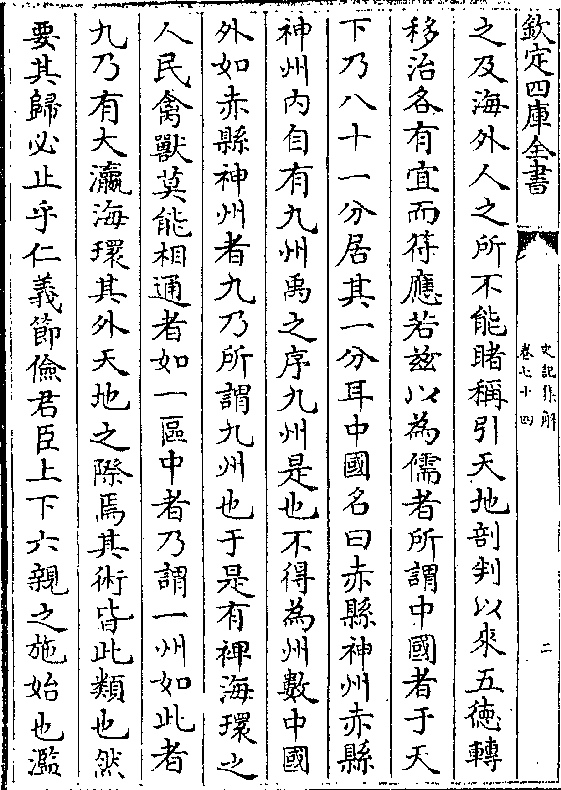 欽定四庫全書
史記集解
卷七十四
二
之及海外人之所不能睹稱引天地剖判以來五徳轉
移治各有宜而符應若兹以為儒者所謂中國者于天
下乃八十一分居其一分耳中國名曰赤縣神州赤縣
神州内自有九州禹之序九州是也不得為州數中國
外如赤縣神州者九乃所謂九州也于是有裨海環之
人民禽獸莫能相通者如一區中者乃謂一州如此者
九乃有大瀛海環其外天地之際焉其術皆此類也然
要其歸必止乎仁義節儉君臣上下六親之施始也濫